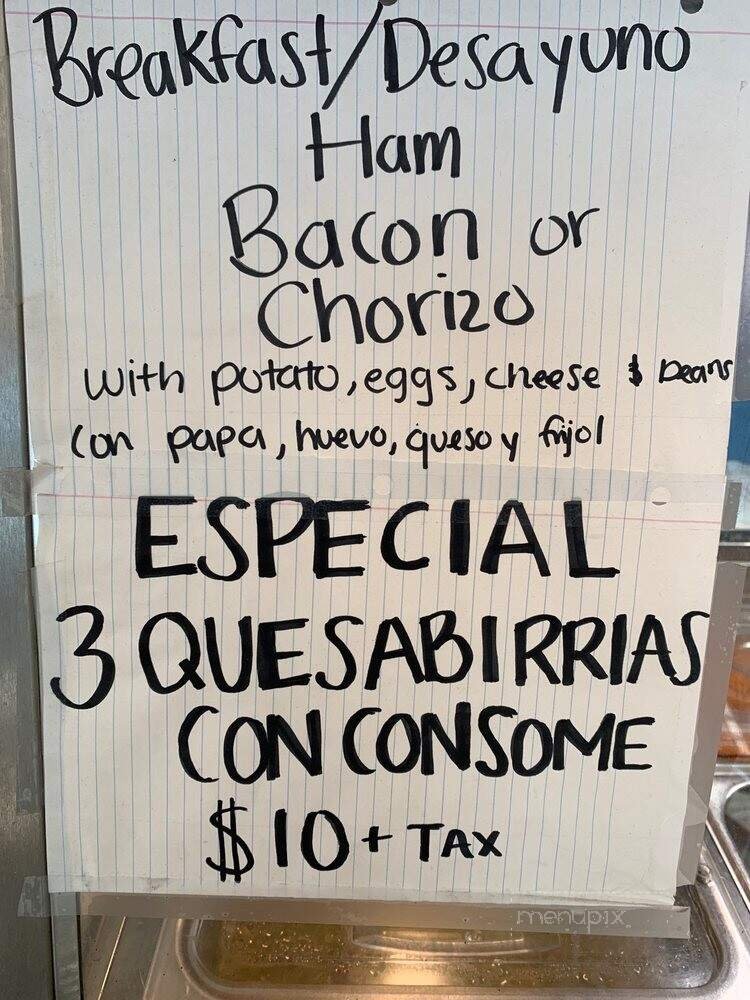 Breakfast/Desayuno
Ham
Bacon or
Chorizo
with potato, eggs, cheese $ beans
con papa, huevo, queso y frijol
ESPECIAL
3 QUESABIRRIAS
CON CONSOME
$10 + TAX
menupix